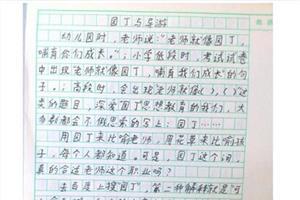 园丁与导游
幼儿园时，老师说："老师就像园丁，
哺育你们成长。"；小学低段时，考试试卷
中出现老师就像园丁，哺育我们成长"的句
子。；高段时，会出现老师就像（ ），（ ）这
类的题目，深受园丁思想教育的我们，大
多都都会不假思索的写上：园丁……
用园丁来比喻老师，用花草来比喻孩
子，每个人都知道。可是，园丁这个词，
真的合适老师这个职业吗？
去百度上搜园丁，第二种解释就是"可